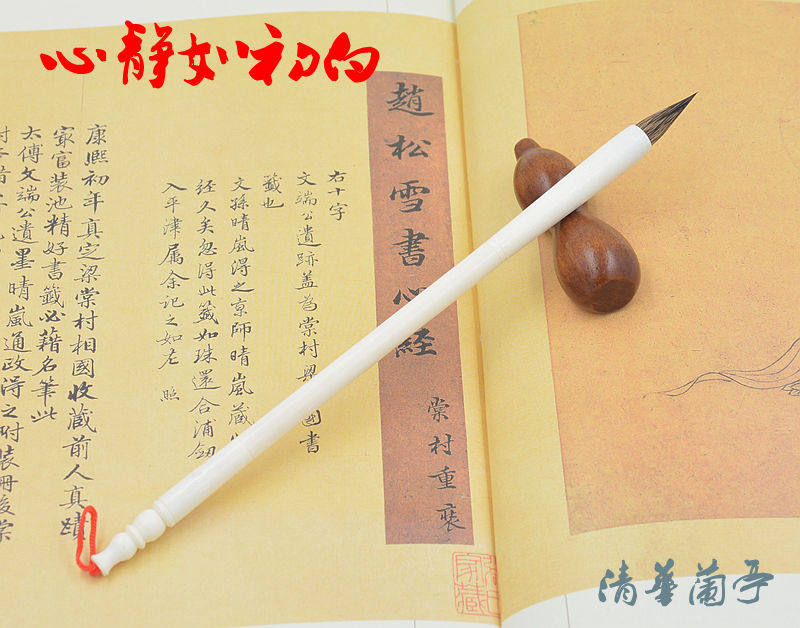 心静如初白
趙松雪書心經
棠村重
右十字
文端公遺跡盖為棠村國書
籤也
文孫晴嵐得之京師晴嵐蔵
经久矣忽得此籤如珠還合浦劒
入平津属余記之如左 照
康熙初年真定梁棠村相國收蔵前人真蹟
冣富装池精好書籤必藉名筆此
太傅文端公遺墨晴嵐通政得之附装冊後棠
家藏
清華蘭亭